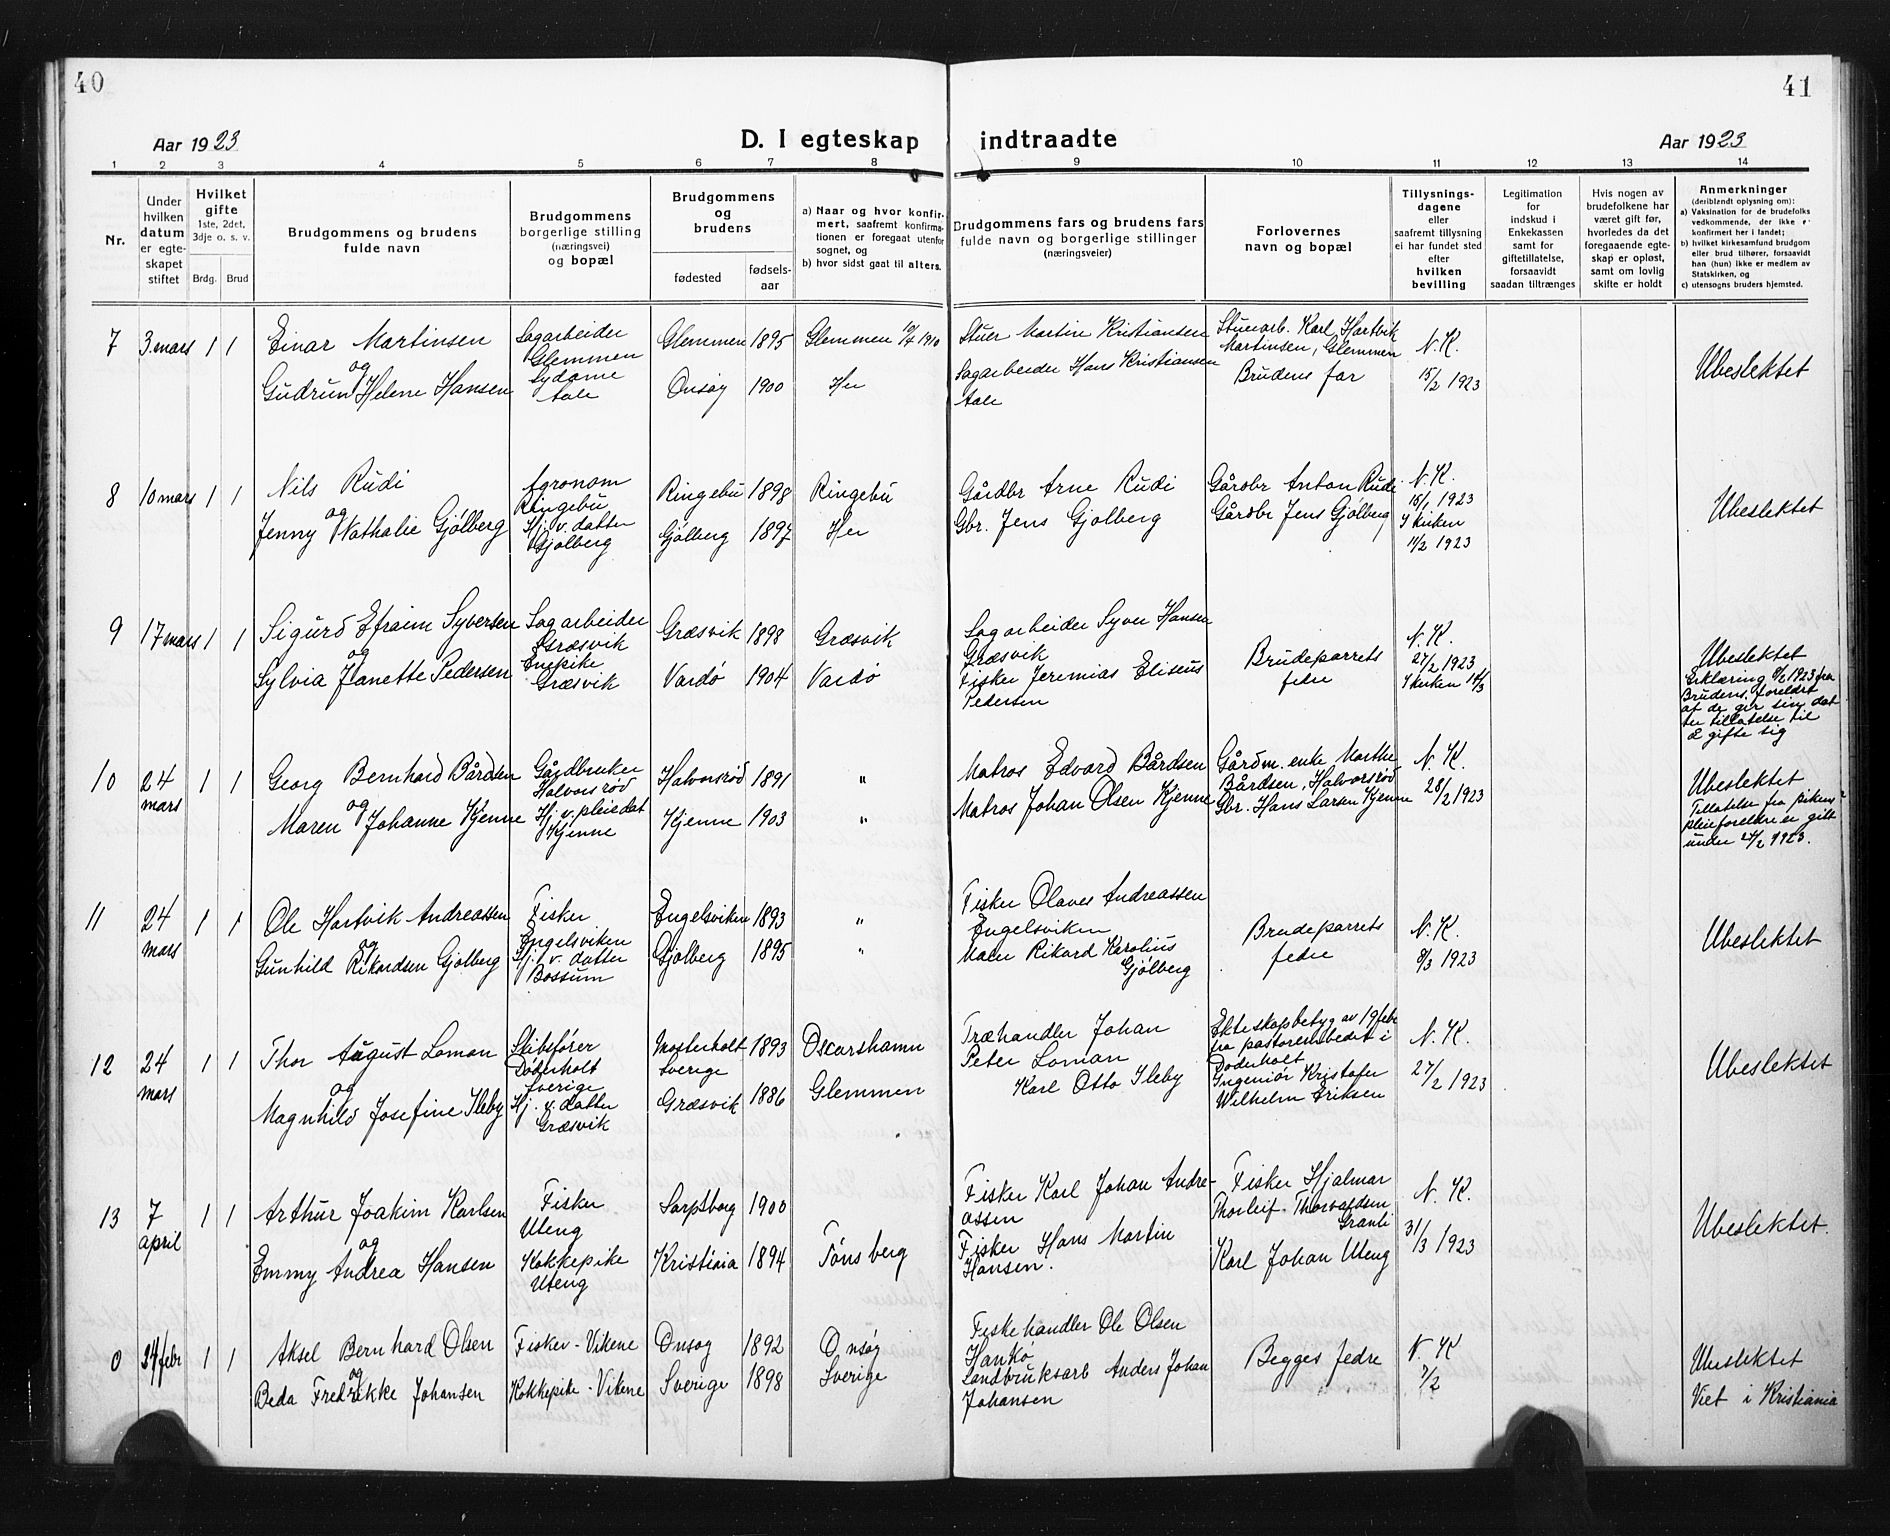 40
41
Aar 1923
D. I egteskap indtraadte
Aar 1923
1 2 3 4 5 6 7 8 9 10 11 12 13 14
Nr.
Under hvilken datum er egte- skapet stiftet
Hvilket gifte 1ste, 2det, 3dje o. s. v.
Brdg. Brud
Brudgommens og brudens fulde navn
Brudgommens borgerlige stilling (næringsvei) og bopæl
Brudgommens og brudens
fødested
fødsels- aar
a) Naar og hvor konfir- mert, saafremt konfirma- tionen er foregaat utenfor sognet, og
b) hvor sidst gaat til alters.
Brudgommens fars og brudens fars fulde navn og borgerlige stillinger (næringsveier)
Forlovernes navn og bopæl
Tillysnings- dagene eller saafremt tillysning ei har fundet sted efter hvilken bevilling
Legitimation for indskud i Enkekassen samt for giftetillatelse, forsaavidt saadan tiltrænges
Hvis nogen av brudefolkene har været gift før, hvorledes da det foregaaende egte- skap er opløst, samt om lovlig skifte er holdt
Anmerkninger (deriblandt oplysning om):
a) Vaksination for de brudefolks vedkommende, der ikke er konfirmert her i landet;
b) hvilket kirkesamfund brudgom eller brud tilhører, forsaavidt han (hun) ikke er medlem av Statskirken, og
c) utensogns bruders hjemsted.
7 3 mars 1 1
Einar Martinsen
og
Gudrun Helene Hansen
Sagarbeider
Glemmen
Sydame
Aale
Glemmen 1895 Glemmen 10/4 1910
Onsøy 1900 Her
Stuer Martin Kristiansen
Sagarbeider Hans Kristiansen
Aale
Stuearb. Karl Hartvik
Martinsen, Glemmen
Brudens far
N. K.
15/2 1923
Ubeslektet
8 10 mars 1 1
Nils Rudi
og
Jenny Nathalie Gjølberg
Agronom
Ringebu
Hj. v. datter
Gjølberg
Ringebu 1898 Ringebu
Gjølberg 1897 Her
Gårdbr Arne Rudi
Gbr. Jens Gjølberg
Gårdbr Anton Rudi
Gårdbr Jens Gjølberg
N. K.
15/1 1923
I kirken
11/2 1923
Ubeslektet
9 17 mars 1 1
Sigurd Efraim Syversen
og
Sylvia Jeanette Pedersen
Sagarbeider
Græsvik
Enepike
Græsvik
Græsvik 1898 Græsvik
Vardø 1904 Vardø
Sagarbeider Syver Hansen
Græsvik
Fisker Jeremias Eliseus
Pedersen
Brudeparrets
fedre
N. K.
27/2 1923
I kirken 14/3
Ubeslektet
Erklæring 1923 fra
Brudens foreldre
at de gir sin dat
ter tillatelse til
å gifte sig
10 24 mars 1 1
Georg Bernhard Bårdsen
og
Maren Johanne Kjenne
Gårdbruker
Halvorsrød
Hj. v. pleiedat
Kjenne
Halvorsrød 1891 "
Kjenne 1903 "
Matros Edvard Bårdsen
Matros Johan Olsen Kjenne
Gårdm. enke Marthe
Bårdsen, Halvorsrød
Gbr. Hans Larsen Kjenne
N. K.
28/2 1923
Ubeslektet
Tillatelse fra pikens
pleieforeldre er gitt
under 27/2 1923.
11 24 mars 1 1
Ole Hartvik Andreassen
og
Gunhild Rikardsen Gjølberg
Fisker
Engelsviken
Hj. v. datter
Bossum
Engelsviken 1893 "
Gjølberg 1895 "
Fisker Olaves Andreassen
Engelsviken
Maler Rikard Karolius
Gjølberg
Brudeparrets
fedre
N. K.
8/3 1923
Ubeslektet
12 24 mars 1 1
Thor August Loman
og
Magnhild Josefine Ileby
Skibsfører
Døderholt
Sverige
Hj. v. datter
Græsvik
Mosterholt 1893 Oscarshamn
Sverige
Græsvik 1886 Glemmen
Træhandler Johan
Peter Loman
Karl Otto Ileby
Ekteskapsbetyg av 19 febr
fra pastorembedet i
Døderholt
Ingeniør Kristofer
Wilhelm Eriksen
N. K.
27/2 1923
Ubeslektet
13 7 april 1 1
Arthur Joakim Karlsen
og
Emmy Andrea Hansen
Fisker
Uteng
Kokkepike
Uteng
Sarpsborg 1900
Kristiania 1894 Tønsberg
Fisker Karl Johan Andre-
assen
Fisker Hans Martin
Hansen.
Fisker Hjalmar
Thorleif Thorvaldsen
Granli
Karl Johan Uteng
N. K.
31/3 1923
Ubeslektet.
0 24 febr 1 1
Aksel Bernhard Olsen
og
Beda Fredrikke Johansen
Fisker - Vikene
Kokkepike - Vikene
Onsøy 1892 Onsøy
Sverige 1898 Sverige
Fiskehandler Ole Olsen
Hankø
Landbruksarb Anders Johan
Johansen
Begges fedre
N. K
7/2
Ubeslektet
Viet i Kristiania